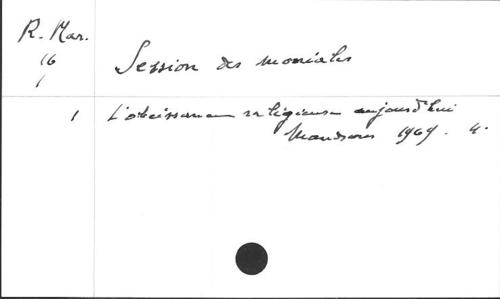 R. Mar.
16
1
Session des moniales
1 L'obeissance religieuse aujourd'hui
1969. 4.